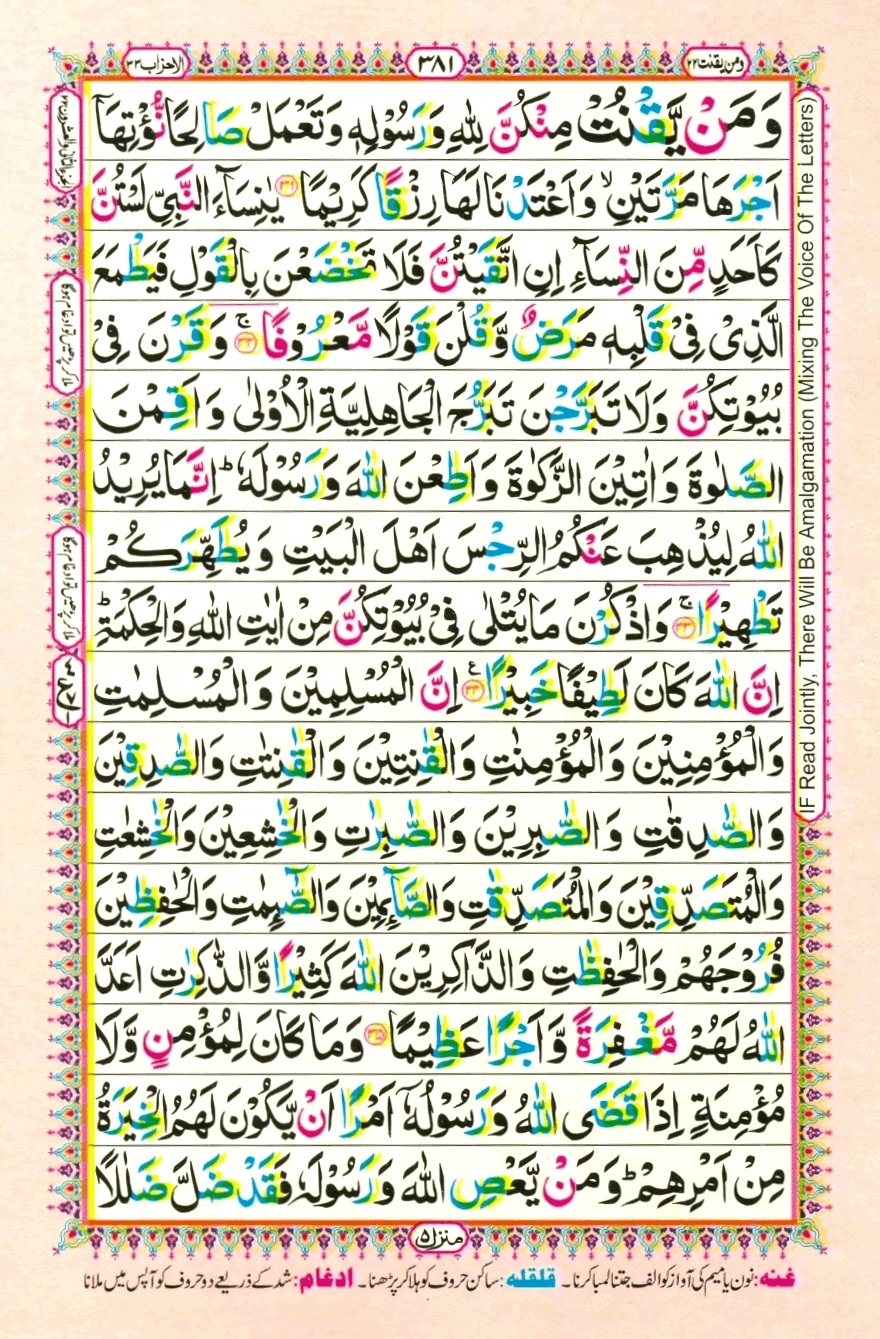 ومن یقنت ۲۲
۳۸۱
الاحزاب ۳۳
وَمَنْ یَّقْنُتْ مِنْكُنَّ لِلّٰهِ وَرَسُوْلِهٖ وَتَعْمَلْ صَالِحًا نُّؤْتِهَاۤ
اَجْرَهَا مَرَّتَیْنِ ۙ وَاَعْتَدْنَا لَهَا رِزْقًا كَرِیْمًا ﴿۳۱﴾ یٰنِسَآءَ النَّبِیِّ لَسْتُنَّ
كَاَحَدٍ مِّنَ النِّسَآءِ اِنِ اتَّقَیْتُنَّ فَلَا تَخْضَعْنَ بِالْقَوْلِ فَیَطْمَعَ
الَّذِیْ فِیْ قَلْبِهٖ مَرَضٌ وَّقُلْنَ قَوْلًا مَّعْرُوْفًا ﴿۳۲﴾ ۚ وَقَرْنَ فِیْ
بُیُوْتِكُنَّ وَلَا تَبَرَّجْنَ تَبَرُّجَ الْجَاهِلِیَّةِ الْاُوْلٰی وَاَقِمْنَ
الصَّلٰوةَ وَاٰتِیْنَ الزَّكٰوةَ وَاَطِعْنَ اللّٰهَ وَرَسُوْلَهٗ ؕ اِنَّمَا یُرِیْدُ
اللّٰهُ لِیُذْهِبَ عَنْكُمُ الرِّجْسَ اَهْلَ الْبَیْتِ وَیُطَهِّرَكُمْ
تَطْهِیْرًا ﴿۳۳﴾ ۚ وَاذْكُرْنَ مَا یُتْلٰی فِیْ بُیُوْتِكُنَّ مِنْ اٰیٰتِ اللّٰهِ وَالْحِكْمَةِ ؕ
اِنَّ اللّٰهَ كَانَ لَطِیْفًا خَبِیْرًا ﴿۳۴﴾ ع اِنَّ الْمُسْلِمِیْنَ وَالْمُسْلِمٰتِ
وَالْمُؤْمِنِیْنَ وَالْمُؤْمِنٰتِ وَالْقٰنِتِیْنَ وَالْقٰنِتٰتِ وَالصّٰدِقِیْنَ
وَالصّٰدِقٰتِ وَالصّٰبِرِیْنَ وَالصّٰبِرٰتِ وَالْخٰشِعِیْنَ وَالْخٰشِعٰتِ
وَالْمُتَصَدِّقِیْنَ وَالْمُتَصَدِّقٰتِ وَالصَّآئِمِیْنَ وَالصّٰٓئِمٰتِ وَالْحٰفِظِیْنَ
فُرُوْجَهُمْ وَالْحٰفِظٰتِ وَالذَّاكِرِیْنَ اللّٰهَ كَثِیْرًا وَّالذّٰكِرٰتِ اَعَدَّ
اللّٰهُ لَهُمْ مَّغْفِرَةً وَّاَجْرًا عَظِیْمًا ﴿۳۵﴾ وَمَا كَانَ لِمُؤْمِنٍ وَّلَا
مُؤْمِنَةٍ اِذَا قَضَی اللّٰهُ وَرَسُوْلُهٗۤ اَمْرًا اَنْ یَّكُوْنَ لَهُمُ الْخِیَرَةُ
مِنْ اَمْرِهِمْ ؕ وَمَنْ یَّعْصِ اللّٰهَ وَرَسُوْلَهٗ فَقَدْ ضَلَّ ضَلٰلًا
IF Read Jointly, There Will Be Amalgamation (Mixing The Voice Of The Letters)
ملا کر پڑھیں تو ادغام ہوگا
ملا کر پڑھیں تو ادغام ہوگا
منزل ۵
غنہ: نون یا میم کی آواز کو الف جتنا لمبا کرنا۔ قلقلہ: ساکن حروف کو ہلا کر پڑھنا۔ ادغام: شد کے ذریعے دو حروف کو آپس میں ملانا